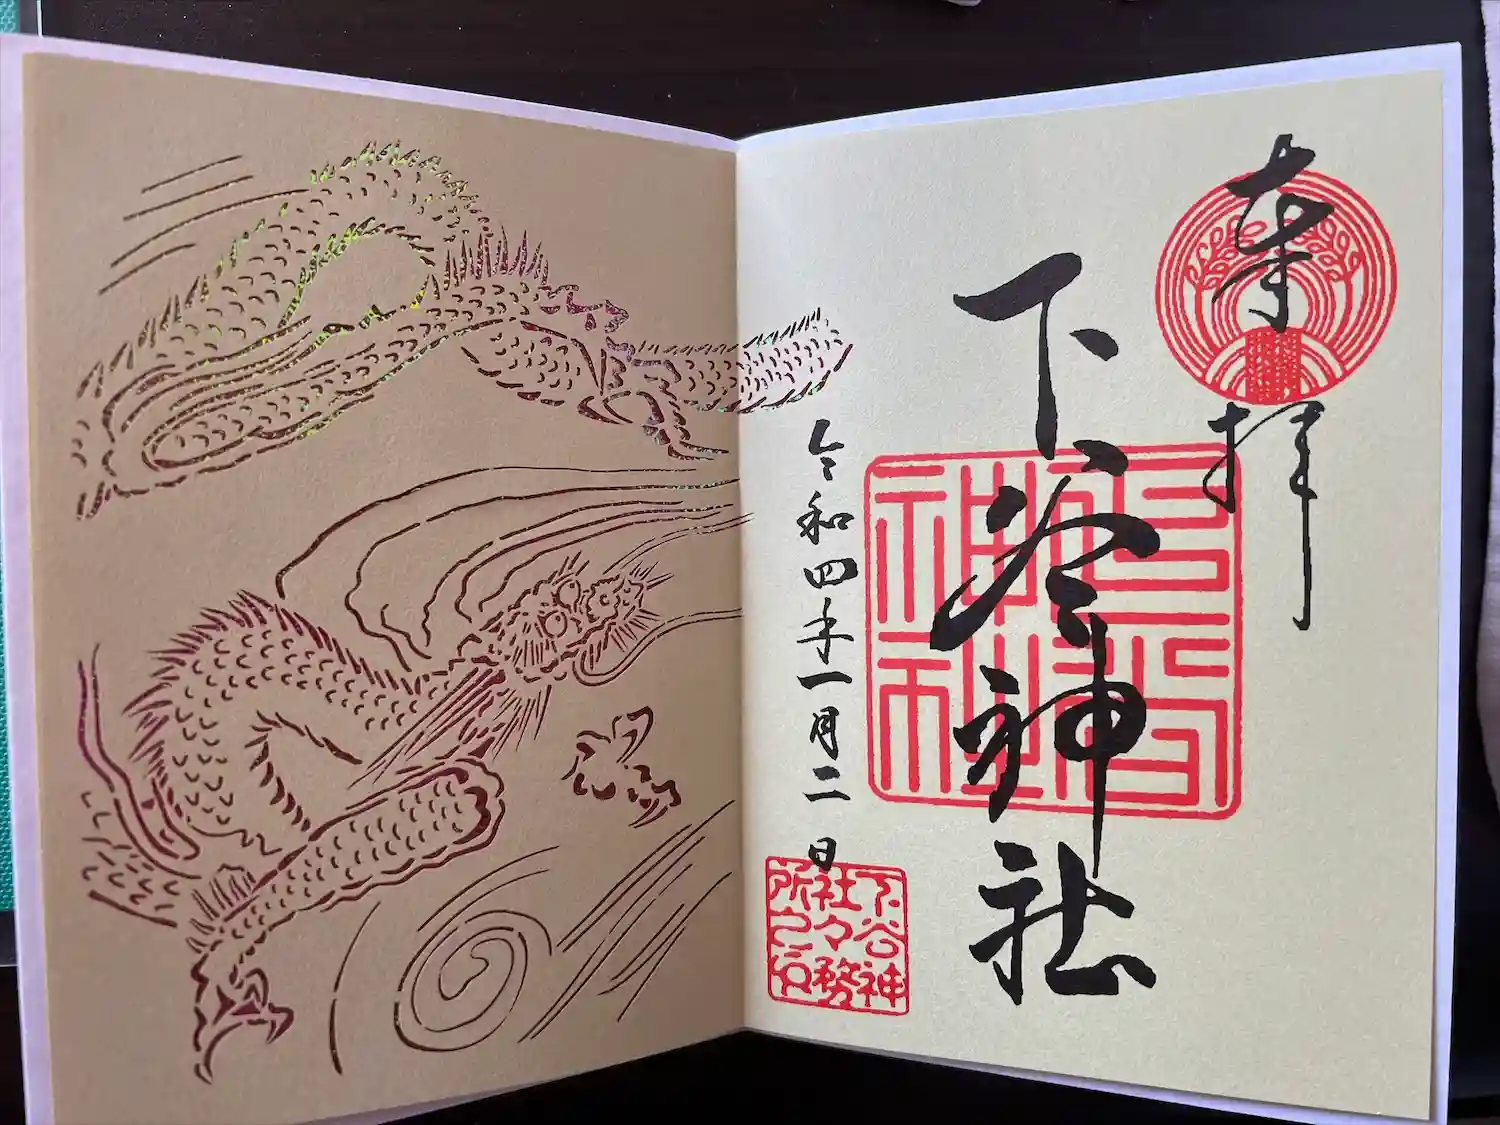 奉拝
下谷神社
令和四年一月二日
下谷神社
下谷神
社々務
所之印